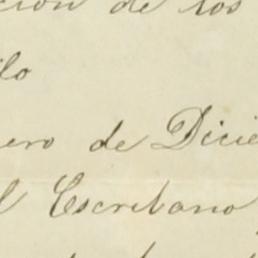 cion de los
lo
ero de Dicie
l Escribano